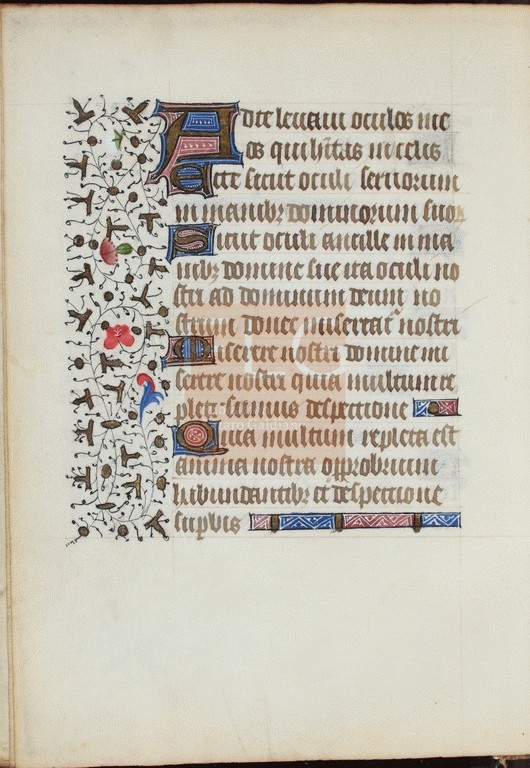 Ad te leuaui oculos me
os qui h̅itas in celis
Ecce sicut oculi seruorum
in manib₃ dominorum suor
Sicut oculi ancille in ma
nib₃ domine sue ita oculi no
stri ad dominum deum no
strum donec misereat᷑ nostri
Miserere nostri domine mi
serere nostri quia multum re
pleti sumus despectione
Quia multum repleta est
anima nostra opprobrium
habundantib₃ et despectione
sup̱bis